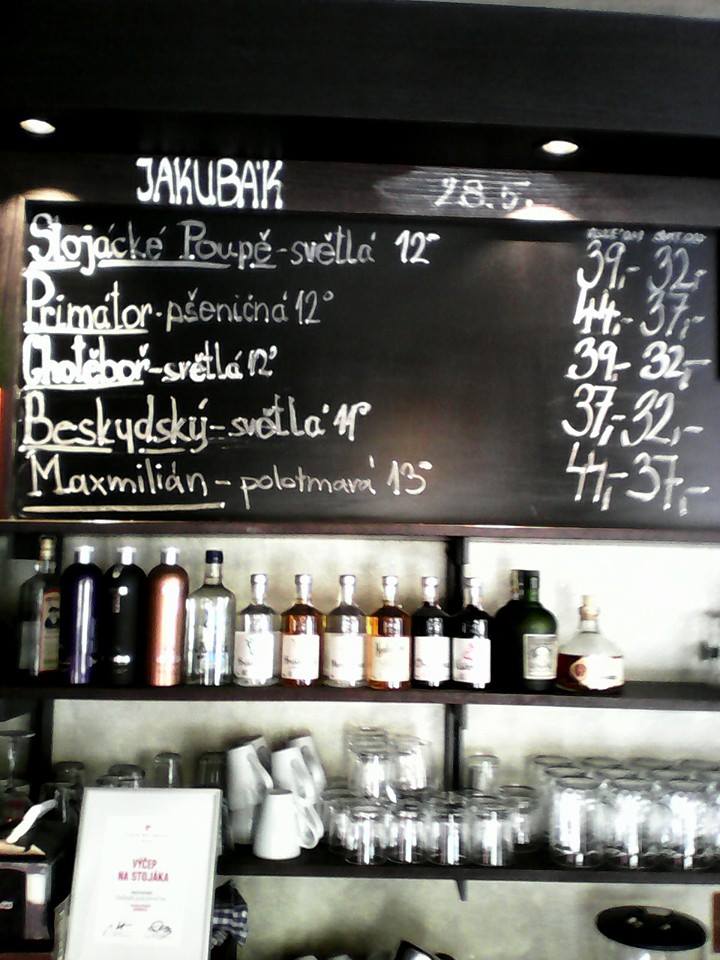 JAKUBÁK 28.5.
Stojácké Poupě-světlá 12° 39,- 32,-
Primátor-pšeničná 12° 44,- 37,-
Chotěboř-světlá 12° 39,- 32,-
Beskydský-světlá 11° 37,- 32,-
Maxmilián - polotmavá 13° 44,- 37,-
VÝČEP
NA STOJÁKA